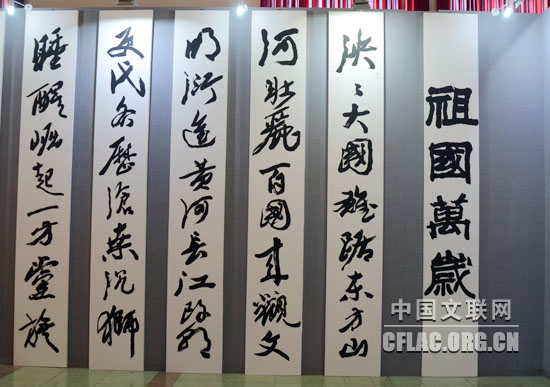 祖國萬歲
泱々大國雄踞东方山
河壯麗百國來觀文
明衍進黄河长江改朝
更歷滄桑沉獅
睡醒崛起一方黨旗
中国文联网
CFLAC.ORG.CN